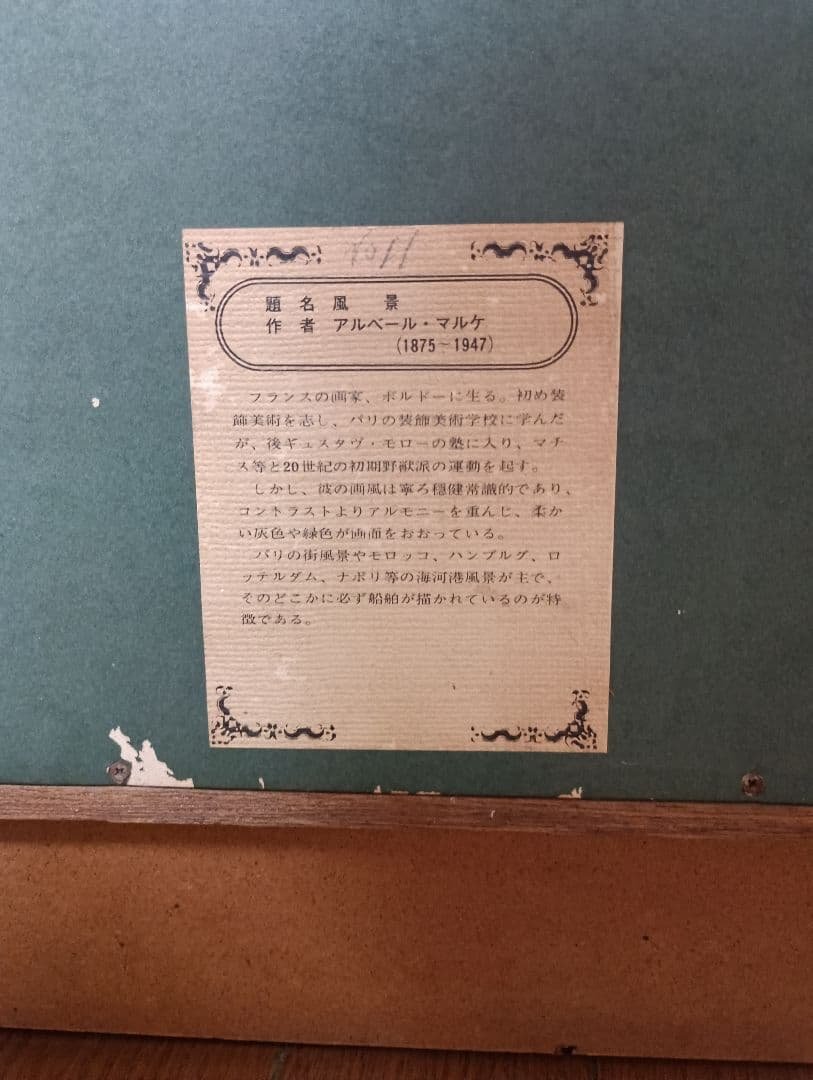 題名 風景
作者 アルベール・マルケ
(1875~1947)
フランスの画家、ボルドーに生る。初め装
飾美術を志し、パリの装飾美術学校に学んだ
が、後ギュスタヴ・モローの塾に入り、マチ
ス等と20世紀の初期野獣派の運動を起す。
しかし、彼の画風は寧ろ穏健常識的であり、
コントラストよりアルモニーを重んじ、柔か
い灰色や緑色が画面をおおっている。
パリの街風景やモロッコ、ハンブルグ、ロ
ッテルダム、ナポリ等の海河港風景が主で、
そのどこかに必ず船舶が描かれているのが特
徴である。